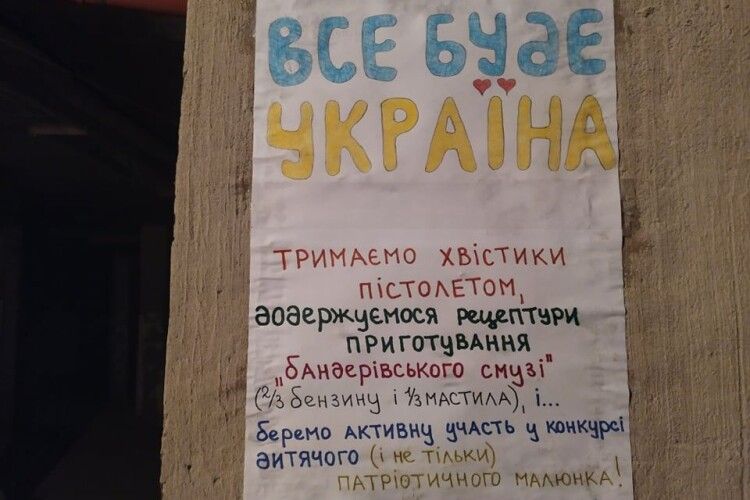 ВСЕ БУДЕ
УКРАЇНА
ТРИМАЄМО ХВІСТИКИ
ПІСТОЛЕТОМ,
додержуємося рецептури
ПРИГОТУВАННЯ
„бандерівського смузі"
(2/3 бензину і 1/3 МАСТИЛА), і...
беремо АКТИВНУ УЧАСТЬ У КОНКУРСІ
дитячого (і не тільки)
ПАТРІОТИЧНОГО МАЛЮНКА!